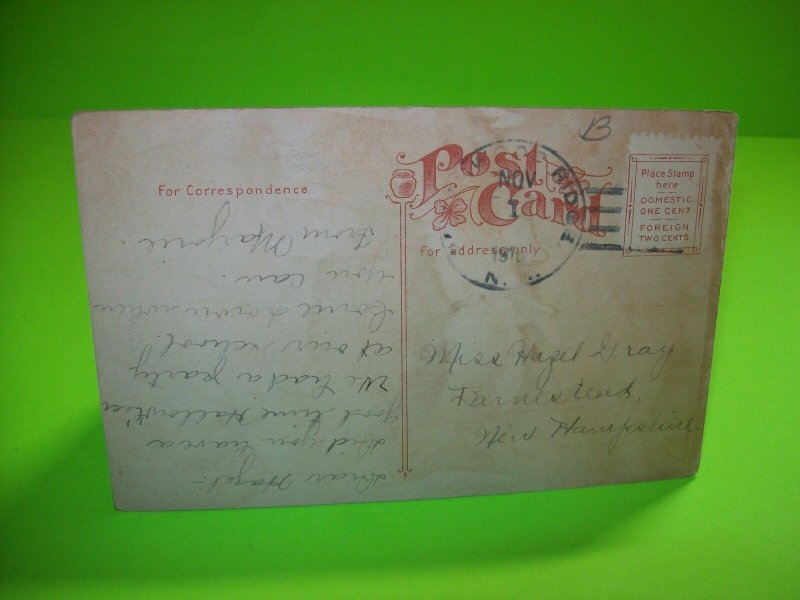 For Correspondence
Post Card
For address only
B
NOV
1
Place Stamp
here
DOMESTIC
ONE CENT
FOREIGN
TWO CENTS
Dear Hazel:-
Did you have a
good time Hallowe'en
We had a party
at our school.
Come down when
you can.
From Marjorie.
Miss Hazel Gray
Farnestead,
New Hampshire.